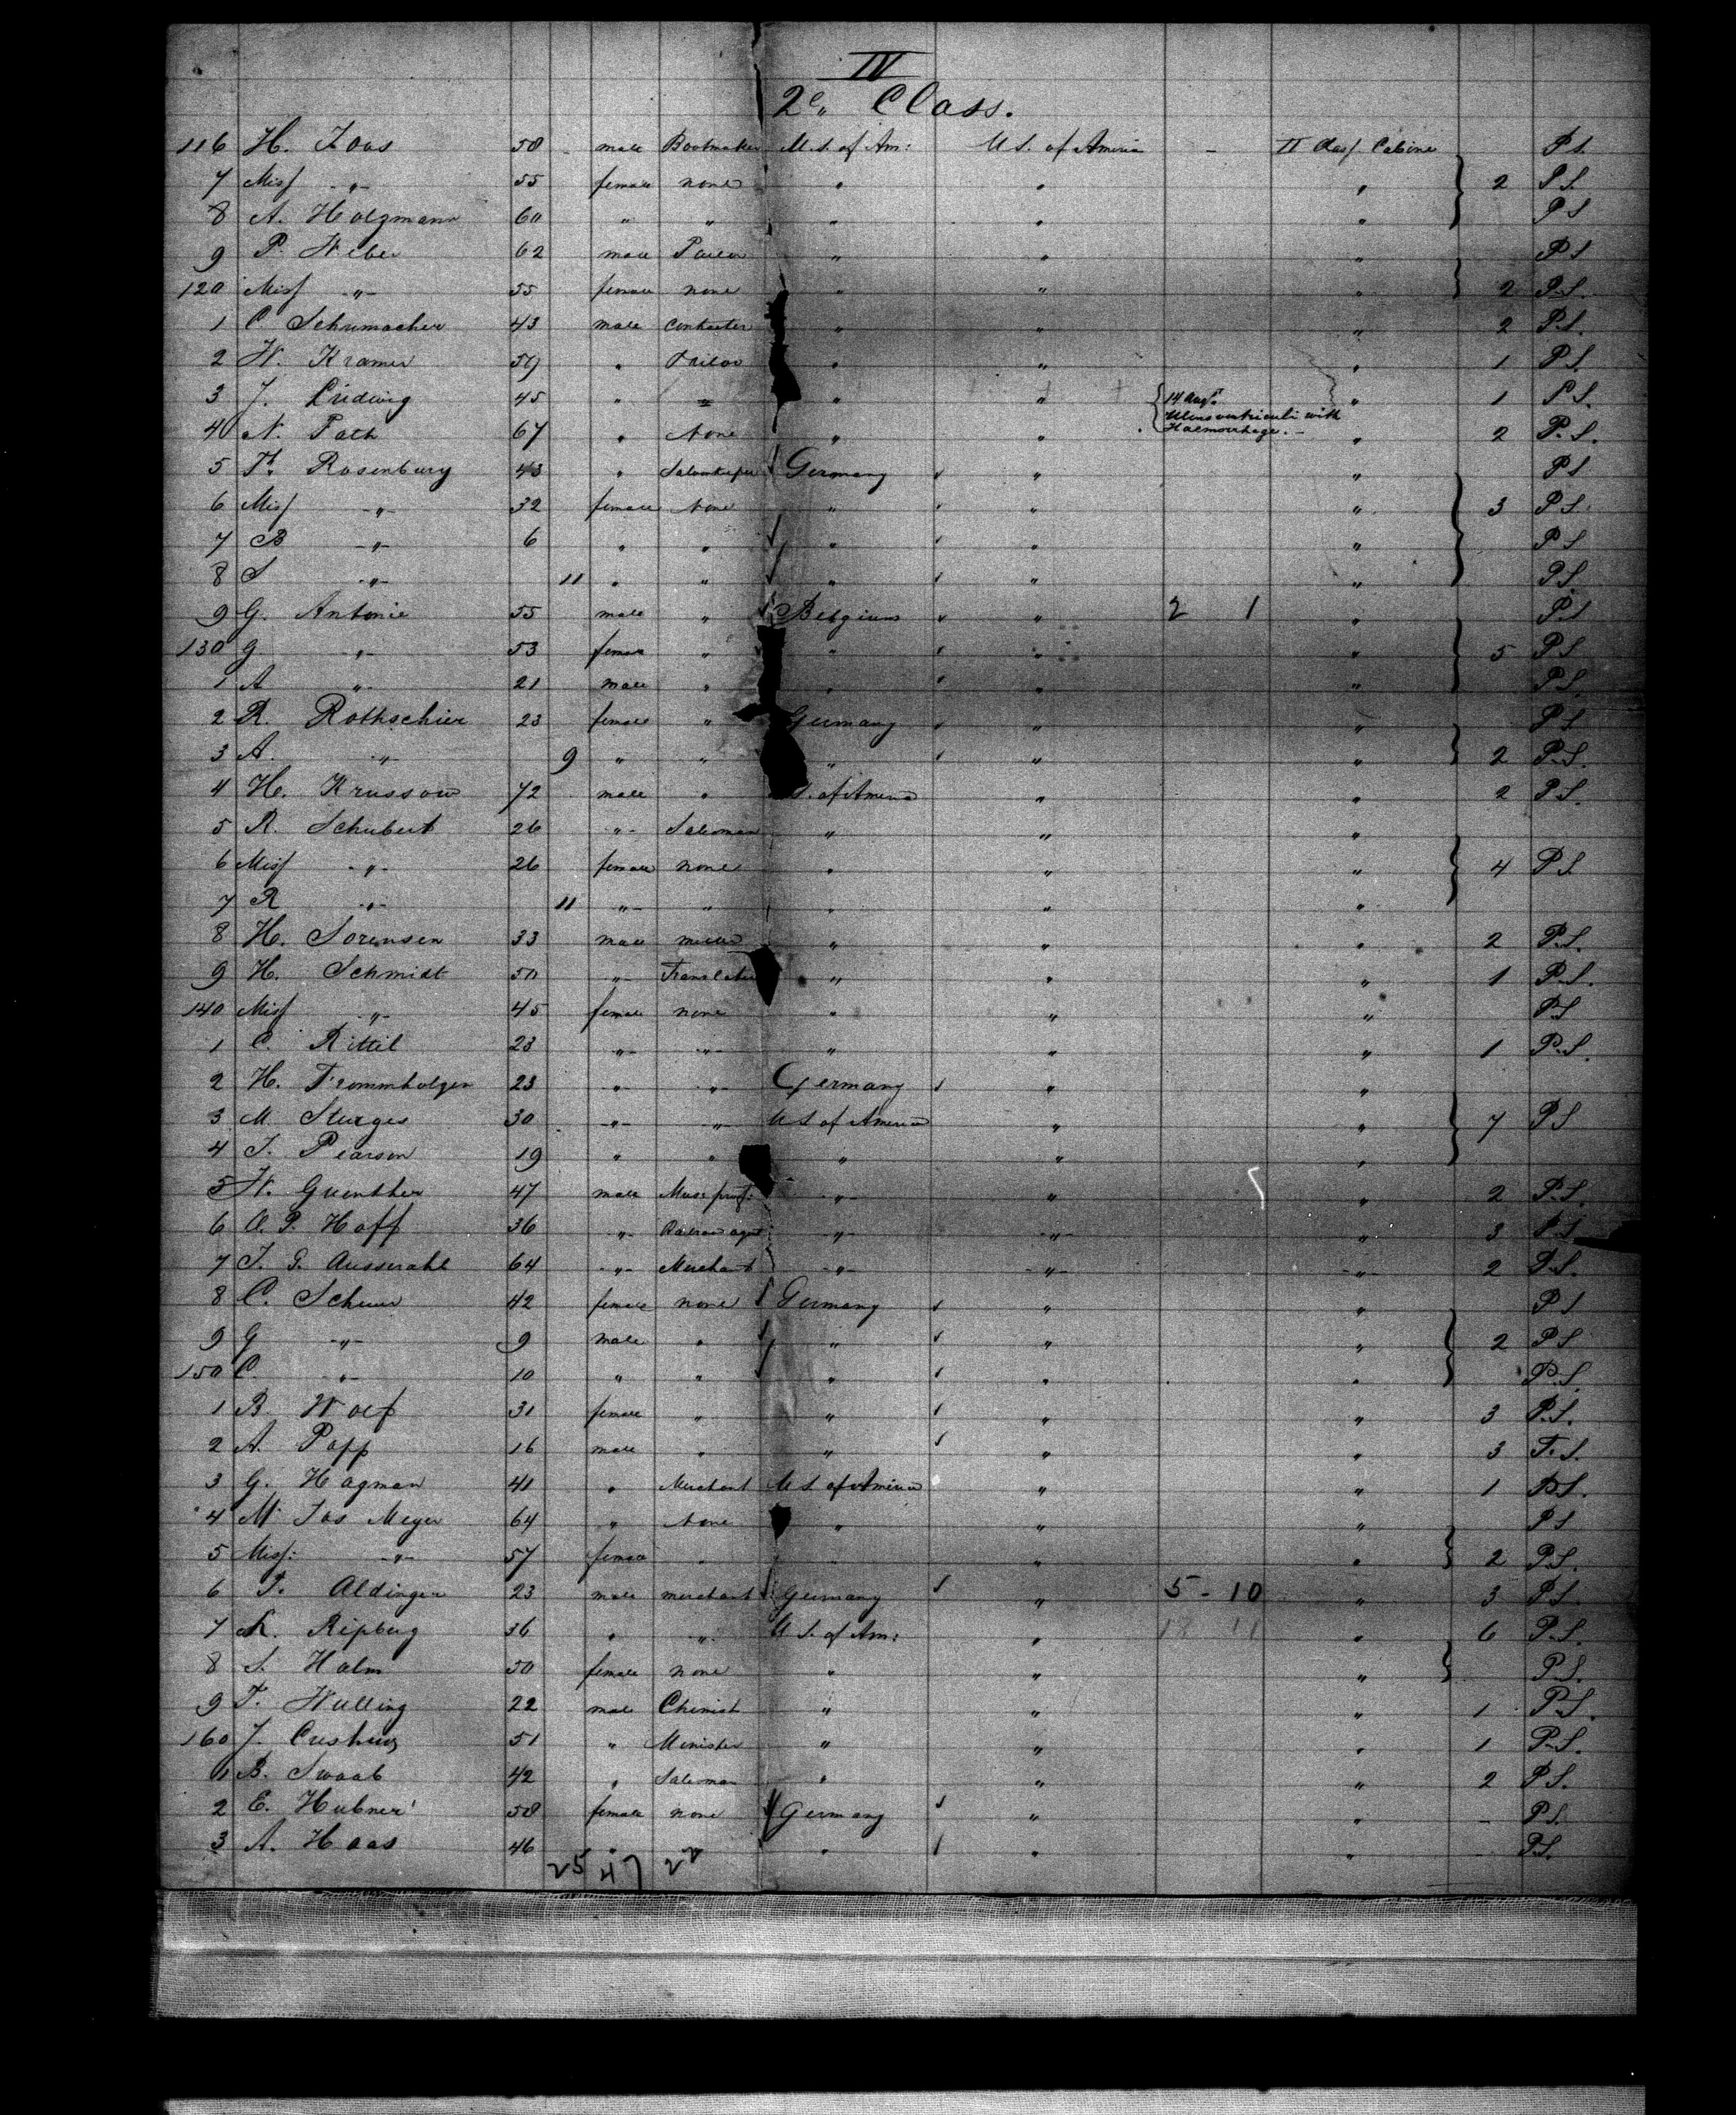 IV
2e. Class.
116 H. Joas 58 - male Bootmaker U.S. of Am: U.S. of America - II Class Cabine P.S.
7 Miss -"- 55 female none " " " 2 P.S.
8 A. Holzmann 60 " " " " " P S
9 P. Weber 62 male " " " P S
120 Miss -"- 55 female none " " " 2 P.S.
1 C. Schumacher 43 male " " " 2 P.S.
2 W. Kramer 59 " " " " 1 P.S.
3 J. Ludwig 45 " " " " 14 Augt. " 1 P.S.
Ulcus ventriculi with
4 N. Path 67 " None " " Haemorrhage. - " 2 P.S.
5 Th. Rosenburg 43 " Saloonkeeper Germany " " P S
6 Miss -"- 32 female None " " " 3 P S.
7 B -"- 6 " " " " " P S
8 S -"- 11 " " " " " P S.
9 G. Antonie 55 male " Belgium " 2 1 " P.S
130 G -"- 53 female " " " " 5 P S
1 A -"- 21 male " " " " P S.
2 R. Rothschier 23 female " Germany " " P S
3 A. -"- 9 " " " " " 2 P.S.
4 H. Krussow 72 male " S. of America " " 2 P S.
5 R. Schubert 26 -"- Salesman " " "
6 Miss -"- 26 female none " " " 4 P S
7 R -"- 11 -"- " " " "
8 H. Sorensen 33 male " " " 2 P.S.
9 H. Schmidt 50 -"- Translator " " " 1 P.S.
140 Miss -"- 45 female none " " " P S
1 C. Rittil 23 -"- -"- " " " 1 P.S.
2 H. Frommholzen 23 -"- -"- Germany " "
3 M. Sturges 30 -"- -"- U S of America " " 7 P S
4 J. Pearson 19 " " " " "
5 W. Guenther 47 male Music prof: -"- " " 2 P.S.
6 A. P. Hoff 36 -"- Railroad agent -"- -"- " 3 P S
7 J. G. 64 -"- Merchant -"- -"- -"- 2 P.S.
8 C. Scheuer 42 female none Germany " " P S
9 G -"- 9 male " " " " 2 P S
150 C. -"- 10 " " " " " P.S.
1 B. Wolf 31 female " " " " 3 P.S.
2 A. Popp 16 male " " " " 3 P.S.
3 G. Hagman 41 " Merchant U S of America " " 1 P.S.
4 M. Jos Meyer 64 " None " " " P S
5 Miss: -"- 57 female " " " 2 P.S.
6 F. Aldinger 23 male merchant Germany " 5 - 10 " 3 P.S.
7 K. Ripberg 36 " -"- U.S. of Am: " " 6 P.S.
8 S. Halm 50 female none " " " P.S.
9 F. Wulling 22 male Chemist " " " 1 P.S.
160 J. Cushing 51 " Minister " " " 1 P.S.
1 B. Swaab 42 " Salesman " " " 2 P S.
2 E. Hubner 58 female none Germany " " - P S.
3 A. Haas 46 " " " " " - P.S.
25 47 22